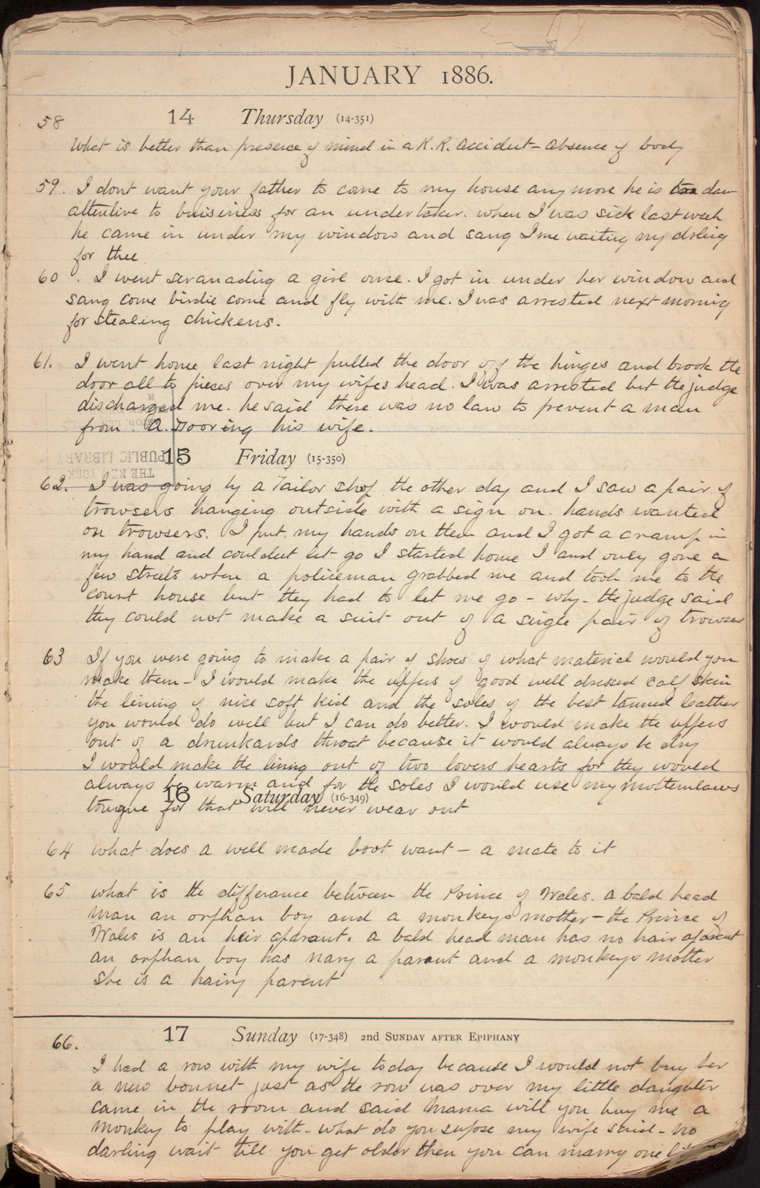 JANUARY 1886.
58 14 Thursday (14-351)
What is better than presence of mind in a R.R. accident - absence of body
59. I dont want your father to come to my house any more he is too dam
attentive to buisiness for an undertaker. when I was sick last week
he came in under my window and sang Ime waiting my drling
for thee
60. I went seranading a girl once. I got in under her window and
sang come birdie come and fly with me. I was arrested next morning
for stealing chickens.
61. I went home last night pulled the door off the hinges and brook the
door all to pieses over my wifes head. I was arrested but the judge
discharged me. he said there was no law to prevent a man
from A. Dooring his wife.
THE NEW YORK
PUBLIC LIBRARY
15 Friday (15-350)
62. I was going by a Tailor shop the other day and I saw a pair of
trowsers hanging outside with a sign on. hands wanted
on trowsers. I put my hands on them and I got a cramp in
my hand and couldent let go I started home I and only gone a
few streets when a policeman grabbed me and took me to the
court house but they had to let me go - why - the judge said
they could not make a suit out of a single pair of trowsers
63 If you were going to make a pair of shoes of what material would you
make them - I would make the uppers of good well dressed calf skin
the lining of nice soft kid and the soles of the best tanned leather
you would do well but I can do better. I would make the uppers
out of a drunkards throat because it would always be dry
I would make the lining out of two lovers hearts for they would
always be warm and for the soles I would use my motherinlaws
16 Saturday (16-349)
tongue for that will never wear out
64 what does a well made boot want - a mate to it
65 what is the difference between the Prince of Wales. a bald head
man an orphan boy and a monkeys mother - the Prince of
Wales is an heir aparant. a bald head man has no hair aparent
an orphan boy has nary a parent and a monkeys mother
she is a hairy parent
66. 17 Sunday (17-348) 2nd SUNDAY AFTER EPIPHANY
I had a row with my wife today because I would not buy her
a new bonnet just as the row was over my little daughter
came in the room and said mama will you buy me a
monkey to play with - what do you supose my wife said - no
darling wait till you get older then you can marry one